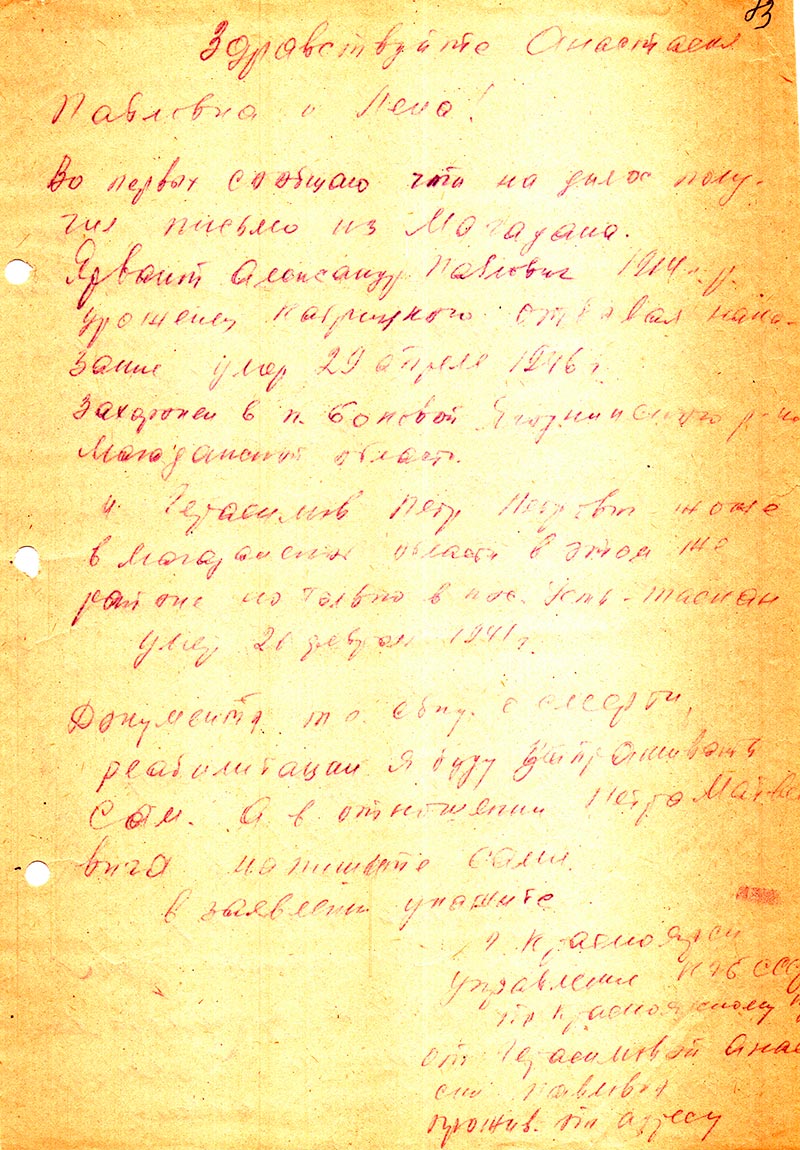 83
Здравствуйте Анастасия
Павловна и Лена!
Во первых сообщаю что на днях полу-
чил письмо из Магадана.
Александр Павлович 1914 г.р.
уроженец отбывал нака-
зание умер 29 апреля 1946 г.
Захоронен в п. Ягоднинского р-на
Магаданской области.
и Герасимов Петр Петрович тоже
в Магаданской области в этом же
районе но только в пос. Усть-Таскан
умер 26 февраля 1941 г.
Документы т.е. о смерти,
реабилитации я буду запрашивать
сам. А в отношении Петра Матве
вича напишите сами.
в заявлении укажите
г. Красноярск
Управление КГБ СССР
по Красноярскому
от Герасимовой Анас
сии Павловны
прожив. по адресу